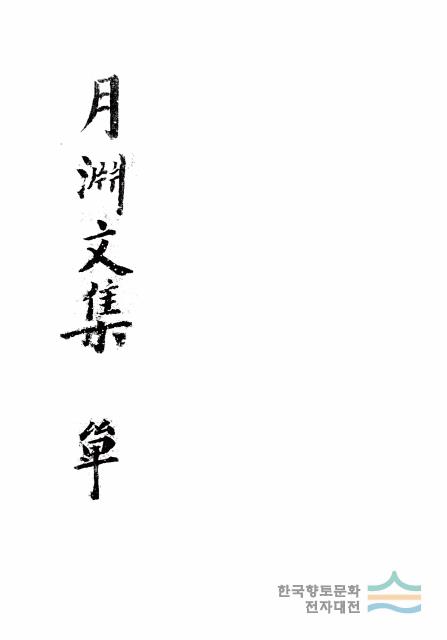 月淵文集 單
한국향토문화
전자대전